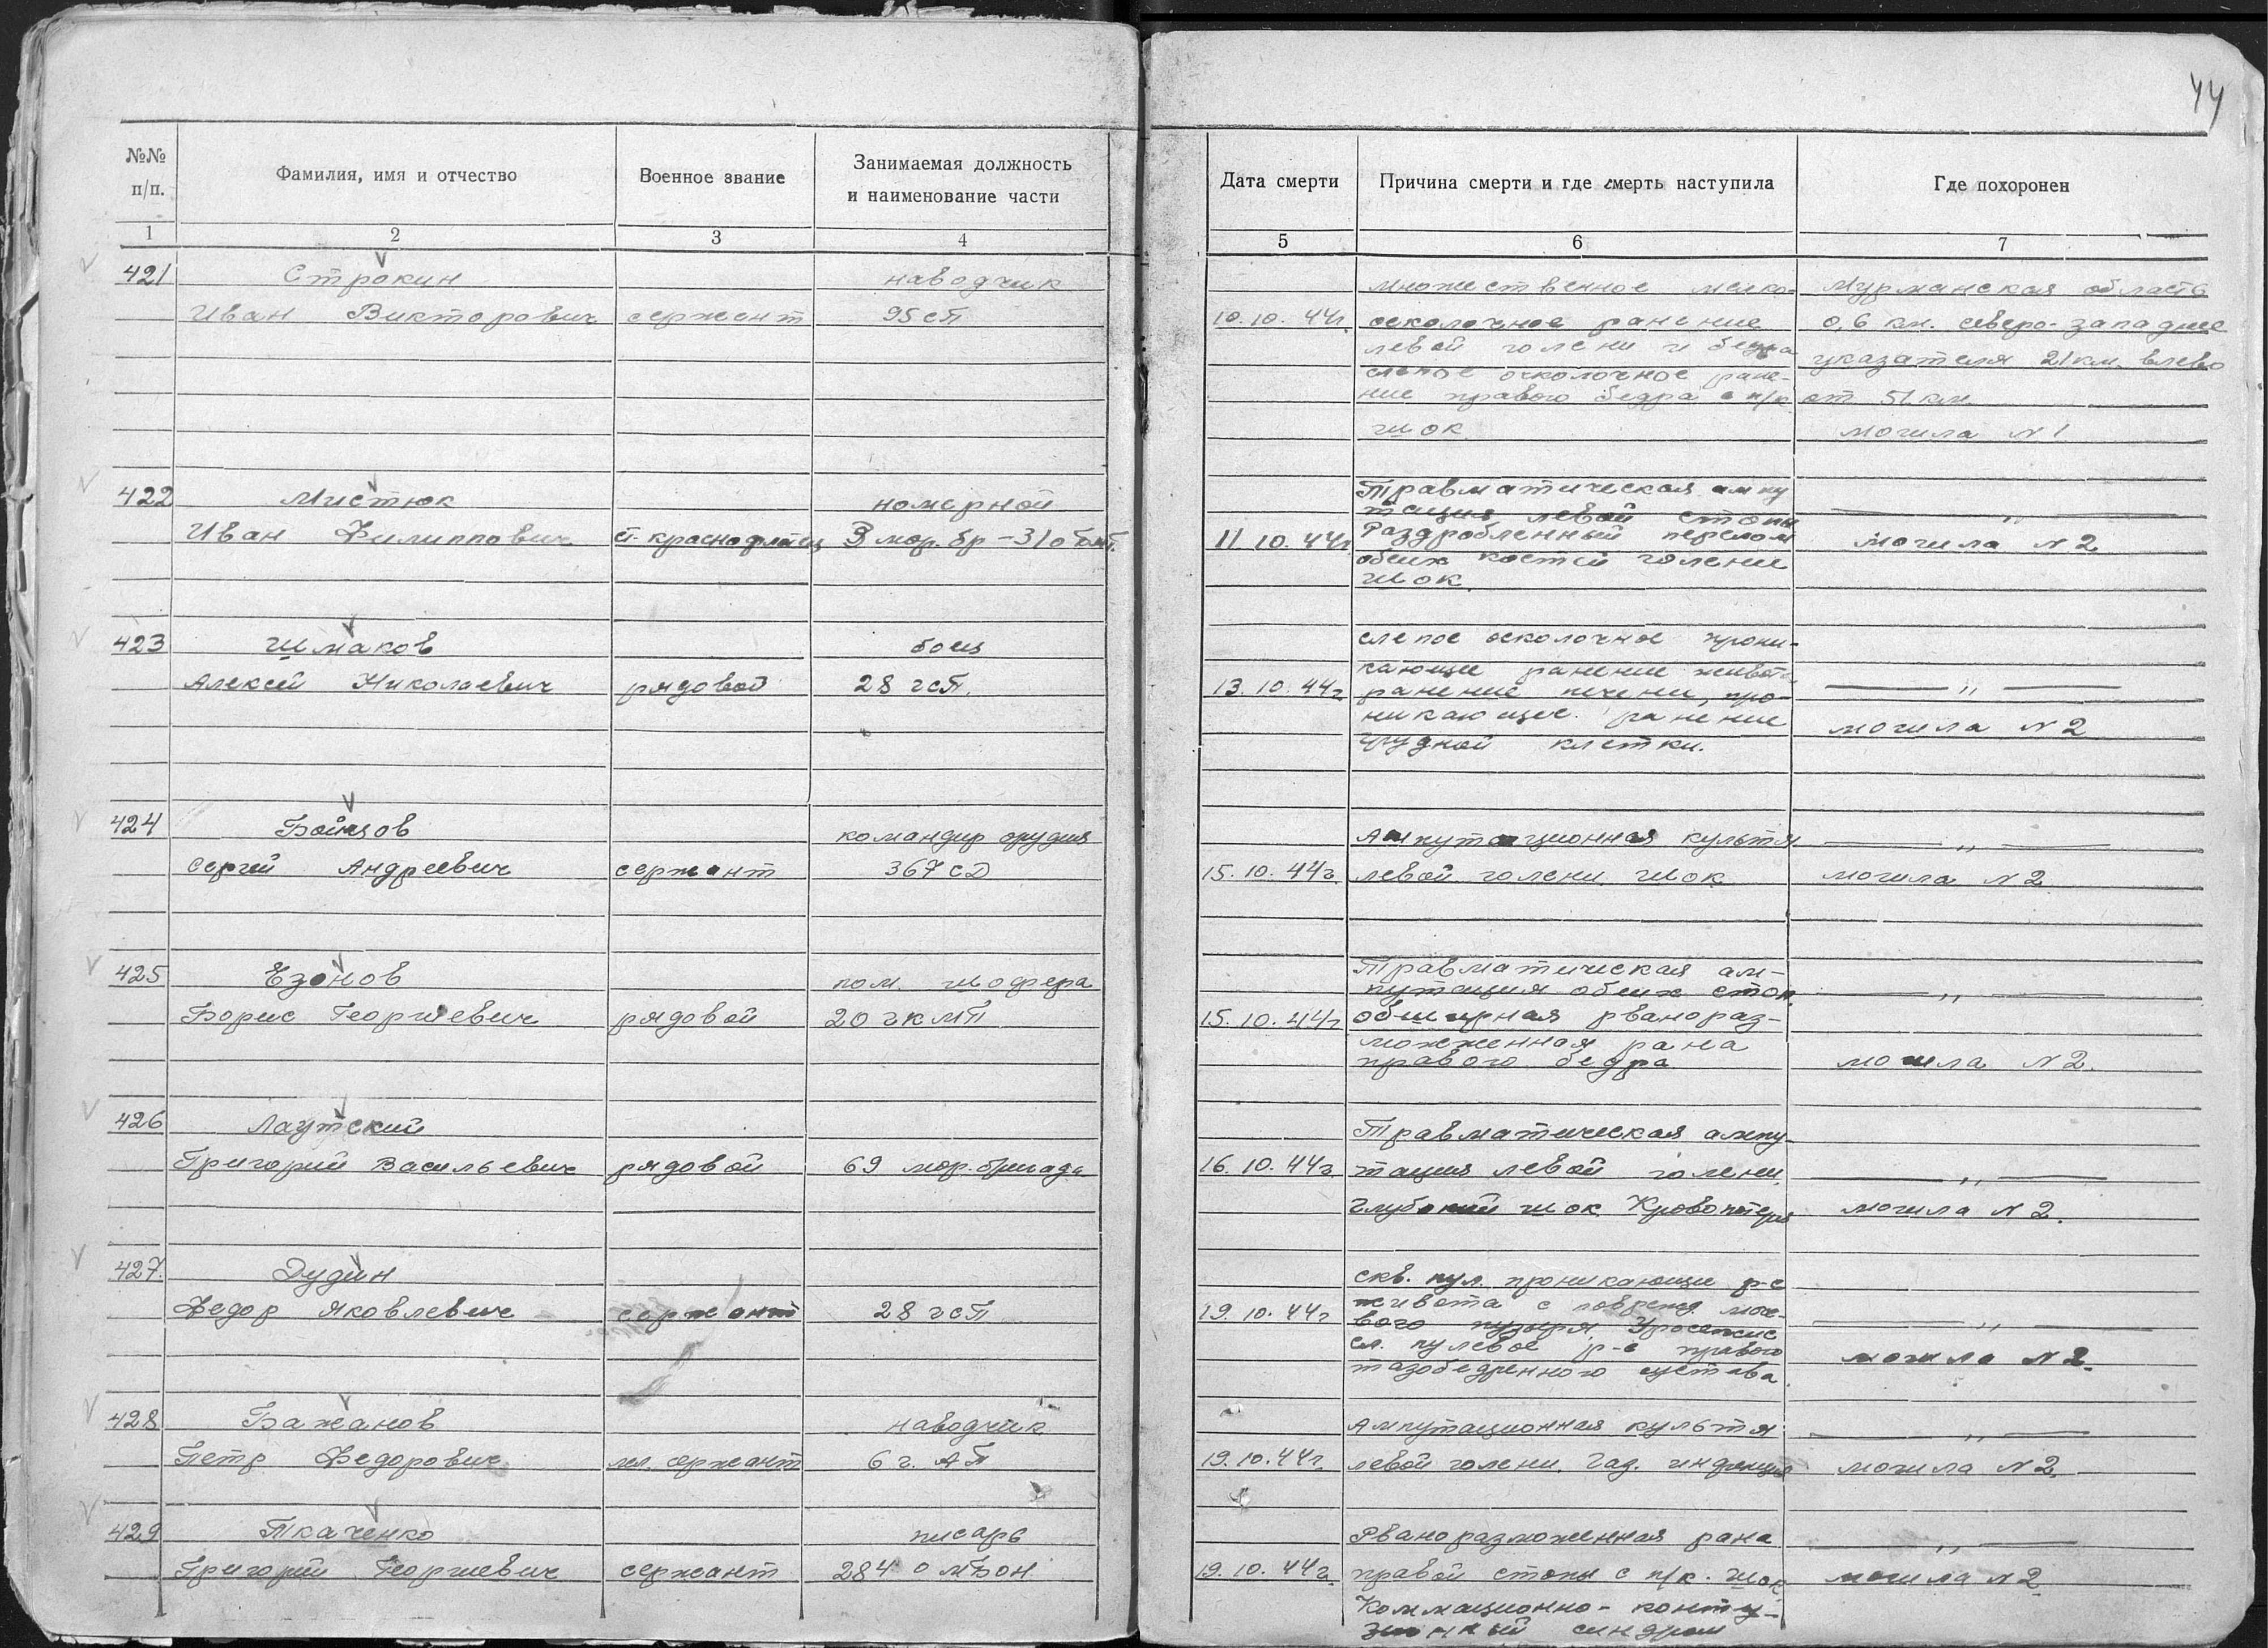 44
№№ п/п. Фамилия, имя и отчество Военное звание Занимаемая должность и наименование части Дата смерти Причина смерти и где смерть наступила Где похоронен
1 2 3 4 5 6 7
421 Строкин наводчик множественное мелко- Мурманская область
Иван Викторович сержант 95 сп 10.10.44г. осколочное ранение 0,6 км. северо-западнее
левой голени и бедра указателя 21 км. влево
слепое осколочное ране-
ние правого бедра с п/к от 51 км
шок могила №1
422 Мистюк номерной Травматическая ампу
тация левой стопы — „ —
Иван Филиппович ст. краснофлотец 3 мор. бр - 31 11.10.44г Раздробленный перелом могила №2
обеих костей голени
шок
423 Шмаков боец слепое осколочное прони-
кающее ранение живота
Алексей Николаевич рядовой 28 гсп. 13.10.44г ранение печени, про- — „ —
никающее ранение могила №2
грудной клетки.
424 Бойцов командир орудия Ампутационная культя — „ —
Сергей Андреевич сержант 367 сд 15.10.44г. левой голени. шок могила №2
425 Езонов пом. шофера Травматическая ам-
путация обеих стоп. — „ —
Борис Георгиевич рядовой 20 гкмп 15.10.44г обширная рванораз-
можженная рана
правого бедра могила №2.
426 Лаутский Травматическая ампу-
Григорий Васильевич рядовой 69 мор. бригада 16.10.44г тация левой голени. — „ —
Глубокий шок Кровопотеря могила №2.
427. Дудин скв. пул. проникающие р-е
Федор Яковлевич сержант 28 гсп 19.10.44г живота с поврежд. моче-
вого пузыря. Уросепсис — „ —
сл. пулевое р-е правого могила №2.
тазобедренного сустава.
428 Бажанов наводчик Ампутационная культя — „ —
Петр Федорович мл. сержант 6 г. АП 19.10.44г. левой голени. Газ. инфекция могила №2.
429 Ткаченко писарь Рваноразможенная рана — „ —
Григорий Георгиевич сержант 284 омбон 19.10.44г. правой стопы с п/к. шок могила №2
Коммационно-конту-
зионный синдром